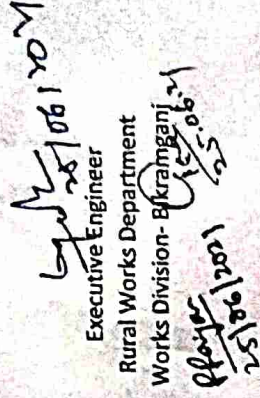 25/06/2021
Executive Engineer
Rural Works Department
Works Division- Bikramganj
25.06.21
25/06/2021